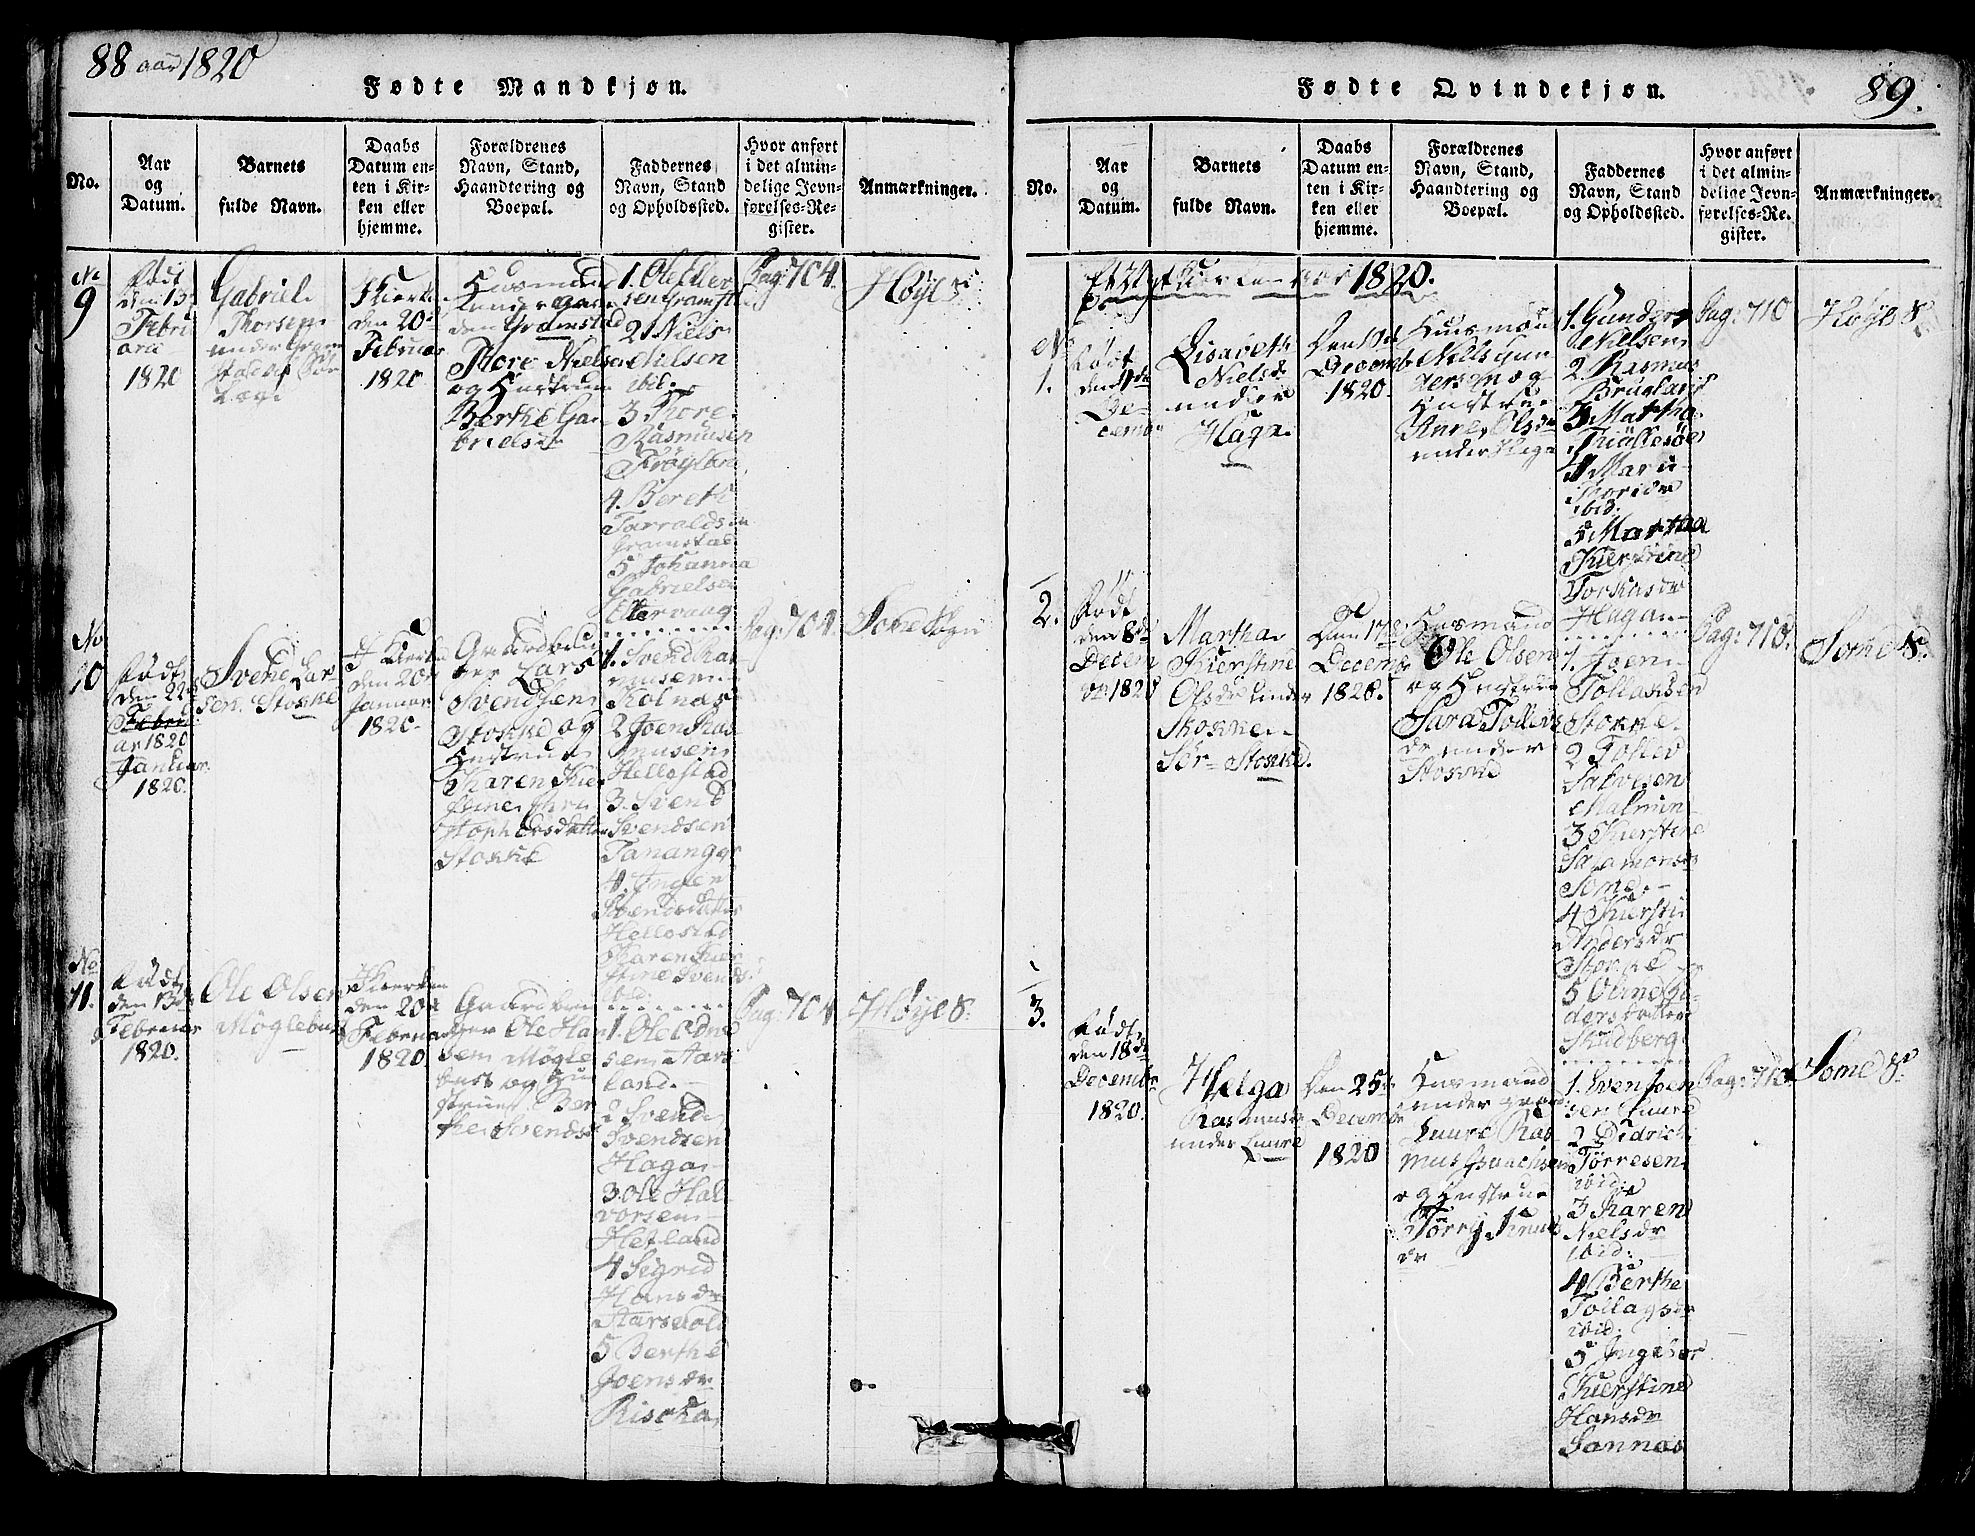 88 aar 1820
Fødte Mandkjøn.
No.
Aar
og
Datum.
Barnets
fulde Navn.
Daabs
Datum en-
ten i Kir-
ken eller
hjemme.
Forældrenes
Navn, Stand,
Haandtering og
Boepæl.
Faddernes
Navn, Stand
og Opholdssted.
Hvor anført
i det almin-
delige Jevn-
førelses-Re-
gister.
Anmærkninger.
No
9
Født
den 13
Febru
arii
1820
Gabriel
Thorsen
under Gram
stad
J Kirke
den 20
Februar
1820
Huusmand
den Gramstad
Thore Nielsen
og Hustrue
Berthe Ga-
brielsdr
1. Ole Eiler
sen Gramst
2 Niels
Nilsen
ibid.
3. Thore
Rasmusen
Frøyland
4. Bereth
Tarraldsdr
Gramstad
5 Johanna
Gabrielsen
Pag: 704.
Høyl S
No
10
Født
den 22
Febru
ar 1820
Januar
1820.
Svend Lar
sen Stokke
J Kirken
den 20
Januar
1820.
Gaardbru
ger Lars
Svendsen
Stokke og
Hustrue
Karen Kier
stine Chri
stophersdatter
Stokke
1. Svend Ras
musen
Kolnas
2 Joen Ras
musen
Hellestad
3. Svend
Svendsen
Tananger
4. Inger
Svendsdatter
Hellestad
Karen Kier
stine Svends
ibid.
Pag: 704.
Some Sogn
No
11.
Født
den 13de
Februar
1820.
Ole Olsen
Møglebust
J Kierken
den 20de
Februar
1820
Gaardbru
ger Ole Han
sen Møgle
bust og Hu
strue Ber
the Svendsd
1. Ole Omd
sen Aars
land.
2 Svend
Svendsen
Haga
3. Ole Hal
vorsen
Hetland
4 Sigrid
Hansdr
Aarsvold
5 Berthe
Joensdr
Riska
Pag: 704
Høyl S.
Fødte Qvindekjøn.
89.
No.
Aar
og
Datum.
Barnets
fulde Navn.
Daabs
Datum en-
ten i Kir-
ken eller
hjemme.
Forældrenes
Navn, Stand,
Haandtering og
Boepæl.
Faddernes
Navn, Stand
og Opholdssted.
Hvor anført
i det almin-
delige Jevn-
førelses-Re.
gister.
Anmærkninger.
aar 1820.
No
1.
Født
den 4de
De-
cembr
Lisabeth
Nielsd
under
Haga.
Decemb
1820
Huusman
Niels Gun
dersen og
Hustrue
Anne Olsdr
under Haga
1. Gunder
Nielsen
2 Rasmus
Brueland
3 Martha
4 Mari
Thorisdr
ibid.
5 Martha
Kierstine
Torkilsdr
Haga
Pag: 710
Høyl S
2.
Født
den 8de
Decem
br 1820
Martha
Kierstine
Olsdr under
Stokke
Sør-Stokke.
Den 17de
Decemb
1820.
Huusmand
Ole Olsen
og Hustrue
Sara Tollevs
dr under
Stokke
1. Joen
Tollaksen
Stokke
2 Tollev
Salvesen
Malmin
3 Kierstine
Salamonsdr
Some.
4 Kiersti
Andersdr
Stokke
5 Oline Pe
dersdatter
Skudberg
Pag: 710.
Some S.
3.
Født
den 18de
Decembr
1820.
Helga
Rasmusdr
under Luure
Den 25de
Decembr
1820
Huusmand
under Gaard
Luure Ras
mus Isaachsen
og Hustrue
Tørri Knuds
dr
1. Sven Joen
sen Luure
2 Didrich
Tørresen
ibid.
3 Karen
Nielsdr
ibid.
4 Berthe
Tollagsdr
ibid.
5 Ingebor
Kierstine
Hansdr
Sannæs
Pag: 710
Some S.